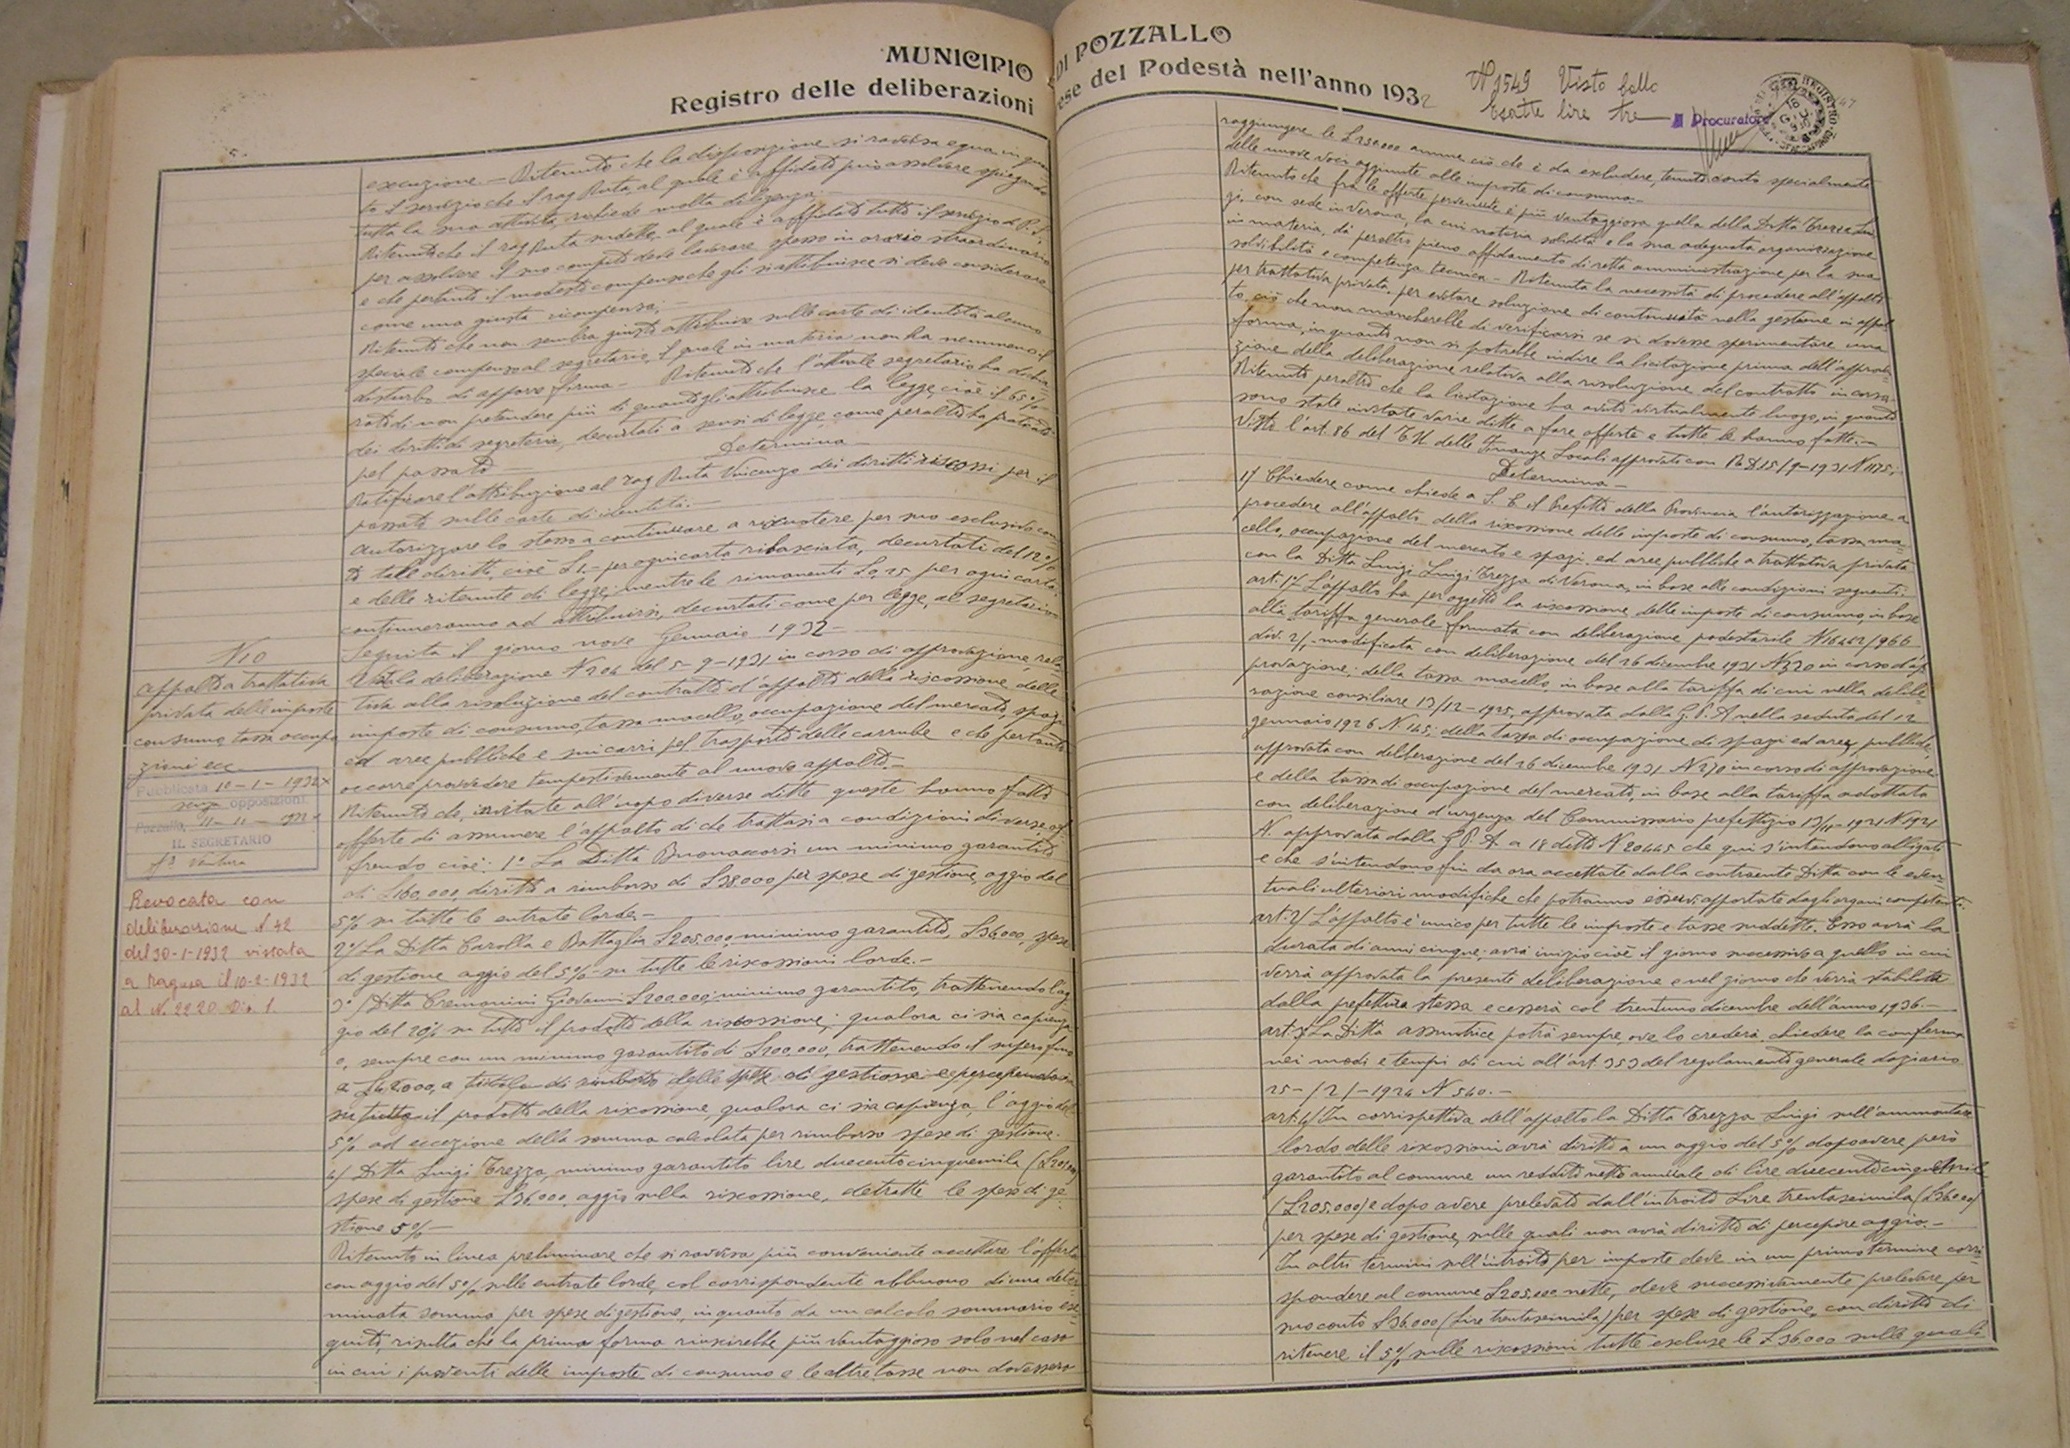 MUNICIPIO DI POZZALLO
Registro delle deliberazioni ese del Podestà nell'anno 1932
N 1549 Visto bollo
Esatte lire tre
Procuratore
47
esecuzione. - Ritenuto che la disposizione si ravvisa equa in quan
to il servizio che il rag Ruta, al quale è affidato può assolvere spiegando
tutta la sua attività, richiede molta diligenza;
Ritenuto che il rag Ruta suddetto, al quale è affidato tutto il servizio di P. S.
per assolvere il suo compito deve lavorare spesso in orario straordinario
e che pertanto il modesto compenso che gli si attribuisce si deve considerare
come una giusta ricompensa; -
Ritenuto che non sembra giusto attribuire sulle carte di identità alcuno
speciale compenso al segretario, il quale in materia non ha nemmeno il
disturbo di apporre firma - Ritenuto che l'attuale segretario ha dichia-
rato di non pretendere più di quanto gli attribuisce la legge, cioè il 65%
dei diritti di segreteria, decurtati a sensi di legge, come peraltro ha praticato
pel passato -
Determina
Ratificare l'attribuzione al rag Ruta Vincenzo dei diritti riscossi per il
passato sulle carte di identità. -
Autorizzare lo stesso a continuare a riscuotere per suo esclusivo con
to tale diritto, cioè £ 1.- per ogni carta rilasciata, decurtati del 12%
e delle ritenute di legge, mentre le rimanenti £ 0,25 per ogni carta
continueranno ad attribuirsi, decurtati come per legge, al segretario
Seguita il giorno nove Gennaio 1932 -
N 10
appalto a trattativa
privata delle imposte
consumo, tassa occupa
zioni ecc
Pubblicata 10-1-1932
senza opposizioni.
Pozzallo, 11-11-
IL SEGRETARIO
Fº Ventura
Revocata con
deliberazione N 42
del 30-1-1932 vistata
a Ragusa il 10-2-1932
al N. 2220 Div. 1.
Vista la deliberazione N 204 del 5-9-1931 in corso di approvazione, rela
tiva alla risoluzione del contratto d'appalto della riscossione delle
imposte di consumo, tassa macello, occupazione del mercato, spazi
ed aree pubbliche e sui carri pel trasporto delle carrube e che pertanto
occorre provvedere tempestivamente al nuovo appalto. -
Ritenuto che, invitate all'uopo diverse ditte queste hanno fatto
offerte di assumere l'appalto di che trattasi a condizioni diverse, of
frendo cioè: 1° La Ditta Buonaccorsi un minimo garantito
di £160,000, diritto a rimborso di £38000 per spese di gestione, aggio del
5% su tutte le entrate lorde -
2°/ La Ditta Carolla e Battaglia £205.000, minimo garantito, £36000, spese
di gestione aggio del 5% su tutte le riscossioni lorde. -
3°/ Ditta Cremonini Giovanni £200.000, minimo garantito, trattenendo l'ag
gio del 20% su tutto il prodotto della riscossione; qualora ci sia capienza
o, sempre con un minimo garantito di £200,000, trattenendo il supero fino
a £42000, a titolo di rimborso delle spese di gestione e percependo
su tutto il prodotto della riscossione, qualora ci sia capienza, l'aggio del
5% ad eccezione della somma calcolata per rimborso spese di gestione.
4/ Ditta Luigi Trezza, minimo garantito lire duecentocinquemila (£205.000)
spese di gestione £36.000, aggio sulla riscossione, detratte le spese di ge
stione 5% -
Ritenuto in linea preliminare che si ravvisa più conveniente accettare l'offerta
con aggio del 5% sulle entrate lorde, col corrispondente abbuono di una deter
minata somma per spese di gestione, in quanto da un calcolo sommario ese
guito, risulta che la prima forma riuscirebbe più vantaggiosa solo nel caso
in cui i proventi delle imposte di consumo e le altre tasse non dovessero
raggiungere le £250000 annue ciò che è da escludere, tenuto conto specialmente
delle nuove voci aggiunte alle imposte di consumo. -
Ritenuto che fra le offerte pervenute è più vantaggiosa quella della Ditta Trezza Lui
gi, con sede in Verona, la cui notoria solidità e la sua adeguata organizzazione
in materia, dà peraltro pieno affidamento di retta amministrazione per la sua
solvibilità e competenza tecnica - Ritenuta la necessità di procedere all'appalto
per trattativa privata, per evitare soluzione di continuità nella gestione in appal
to, ciò che non mancherebbe di verificarsi se si dovesse sperimentare una
forma, in quanto non si potrebbe indire la licitazione prima dell'approva-
zione della deliberazione relativa alla risoluzione del contratto in corso -
Ritenuto peraltro che la licitazione ha avuto virtualmente luogo, in quanto
sono state invitate varie ditte a fare offerte e tutte le hanno fatte. -
Visto l'art. 86 del T.U. delle Finanze Locali approvato con R.D. 15/9-1931 N 1175. -
Determina -
1/ Chiedere come chiede a S. E. il Prefetto della Provincia l'autorizzazione a
procedere all'appalto della riscossione delle imposte di consumo, tassa ma-
cello, occupazione del mercato e spazi ed aree pubbliche a trattativa privata
con la Ditta Luigi Luigi Trezza di Verona, in base alle condizioni seguenti:
art. 1/ L'appalto ha per oggetto la riscossione delle imposte di consumo, in base
alla tariffa generale formata con deliberazione podestarile N 16422/966
div. 2/, modificata con deliberazione del 26 dicembre 1931 N 320 in corso d'ap
provazione; della tassa macello, in base alla tariffa di cui nella delibe-
razione consiliare 13/12-1925, approvata dalla G. P. A nella seduta del 12
gennaio 1926 N 145; della tassa di occupazione di spazi ed aree pubbliche,
approvata con deliberazione del 26 dicembre 1931 N 210 in corso di approvazione
e della tassa di occupazione del mercato, in base alla tariffa adottata
con deliberazione d'urgenza del Commissario prefettizio 13/11-1921 N 1921
N. approvata dalla G. P. A a 18 detto N 20445 che qui s'intendono allegate
e che s'intendono fin da ora accettate dalla contraente Ditta con le even-
tuali ulteriori modifiche che potranno esservi apportate dagli organi competenti.
art. 2/ L'appalto è unico per tutte le imposte e tasse suddette. Esso avrà la
durata di anni cinque: avrà inizio cioè il giorno successivo a quello in cui
verrà approvata la presente deliberazione e nel giorno che verrà stabilito
dalla prefettura stessa e cesserà col trentuno dicembre dell'anno 1936 -
art. 3/ La Ditta assuntrice potrà sempre, ove lo crederà, chiedere la conferma
nei modi e tempi di cui all'art. 353 del regolamento generale daziario
25-/2/-1924 N 540. -
art. 4/ In corrispettivo dell'appalto la Ditta Trezza Luigi sull'ammontare
lordo delle riscossioni avrà diritto a un aggio del 5% dopo avere però
garantito al comune un reddito netto annuale di lire duecentocinquemila
(£205.000) e dopo avere prelevato dall'introito Lire trentaseimila (£36000)
per spese di gestione, sulle quali non avrà diritto di percepire aggio. -
In altri termini sull'introito per imposte deve in un primo termine corri
spondere al comune £205.000 nette, deve successivamente prelevare per
suo conto £36.000 (Lire trentaseimila) per spese di gestione, con diritto di
ritenere il 5% sulle riscossioni tutte escluse le £36000 sulle quali